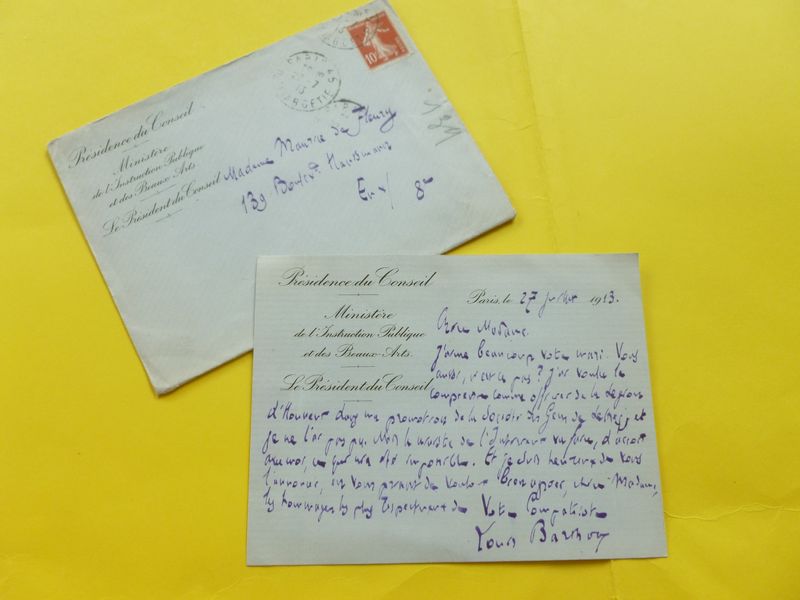 Présidence du Conseil
Ministère
de l'Instruction Publique
et des Beaux-Arts.
Le Président du Conseil
10
PARIS
Madame Maurice de Fleury
139 Boulevd Haussmann
E.V. 8e
Présidence du Conseil
Ministère
de l'Instruction Publique
et des Beaux-Arts.
Le Président du Conseil
Paris, le 27 juillet 1913.
Chère Madame,
J'aime beaucoup votre mari. Vous
aussi, n'est-ce pas? J'ai voulu le
comprendre comme officier de la Légion
d'Honneur dans ma promotion de la Société des Gens de Lettres, et
je ne l'ai pas pu. Mais le ministre de l'Intérieur va faire, d'accord
avec moi, ce qui m'a été impossible. Et je suis heureux de vous
l'annoncer, en vous priant de vouloir bien agréer, chère Madame,
les hommages les plus respectueux de Votre Compatriote
Louis Barthou